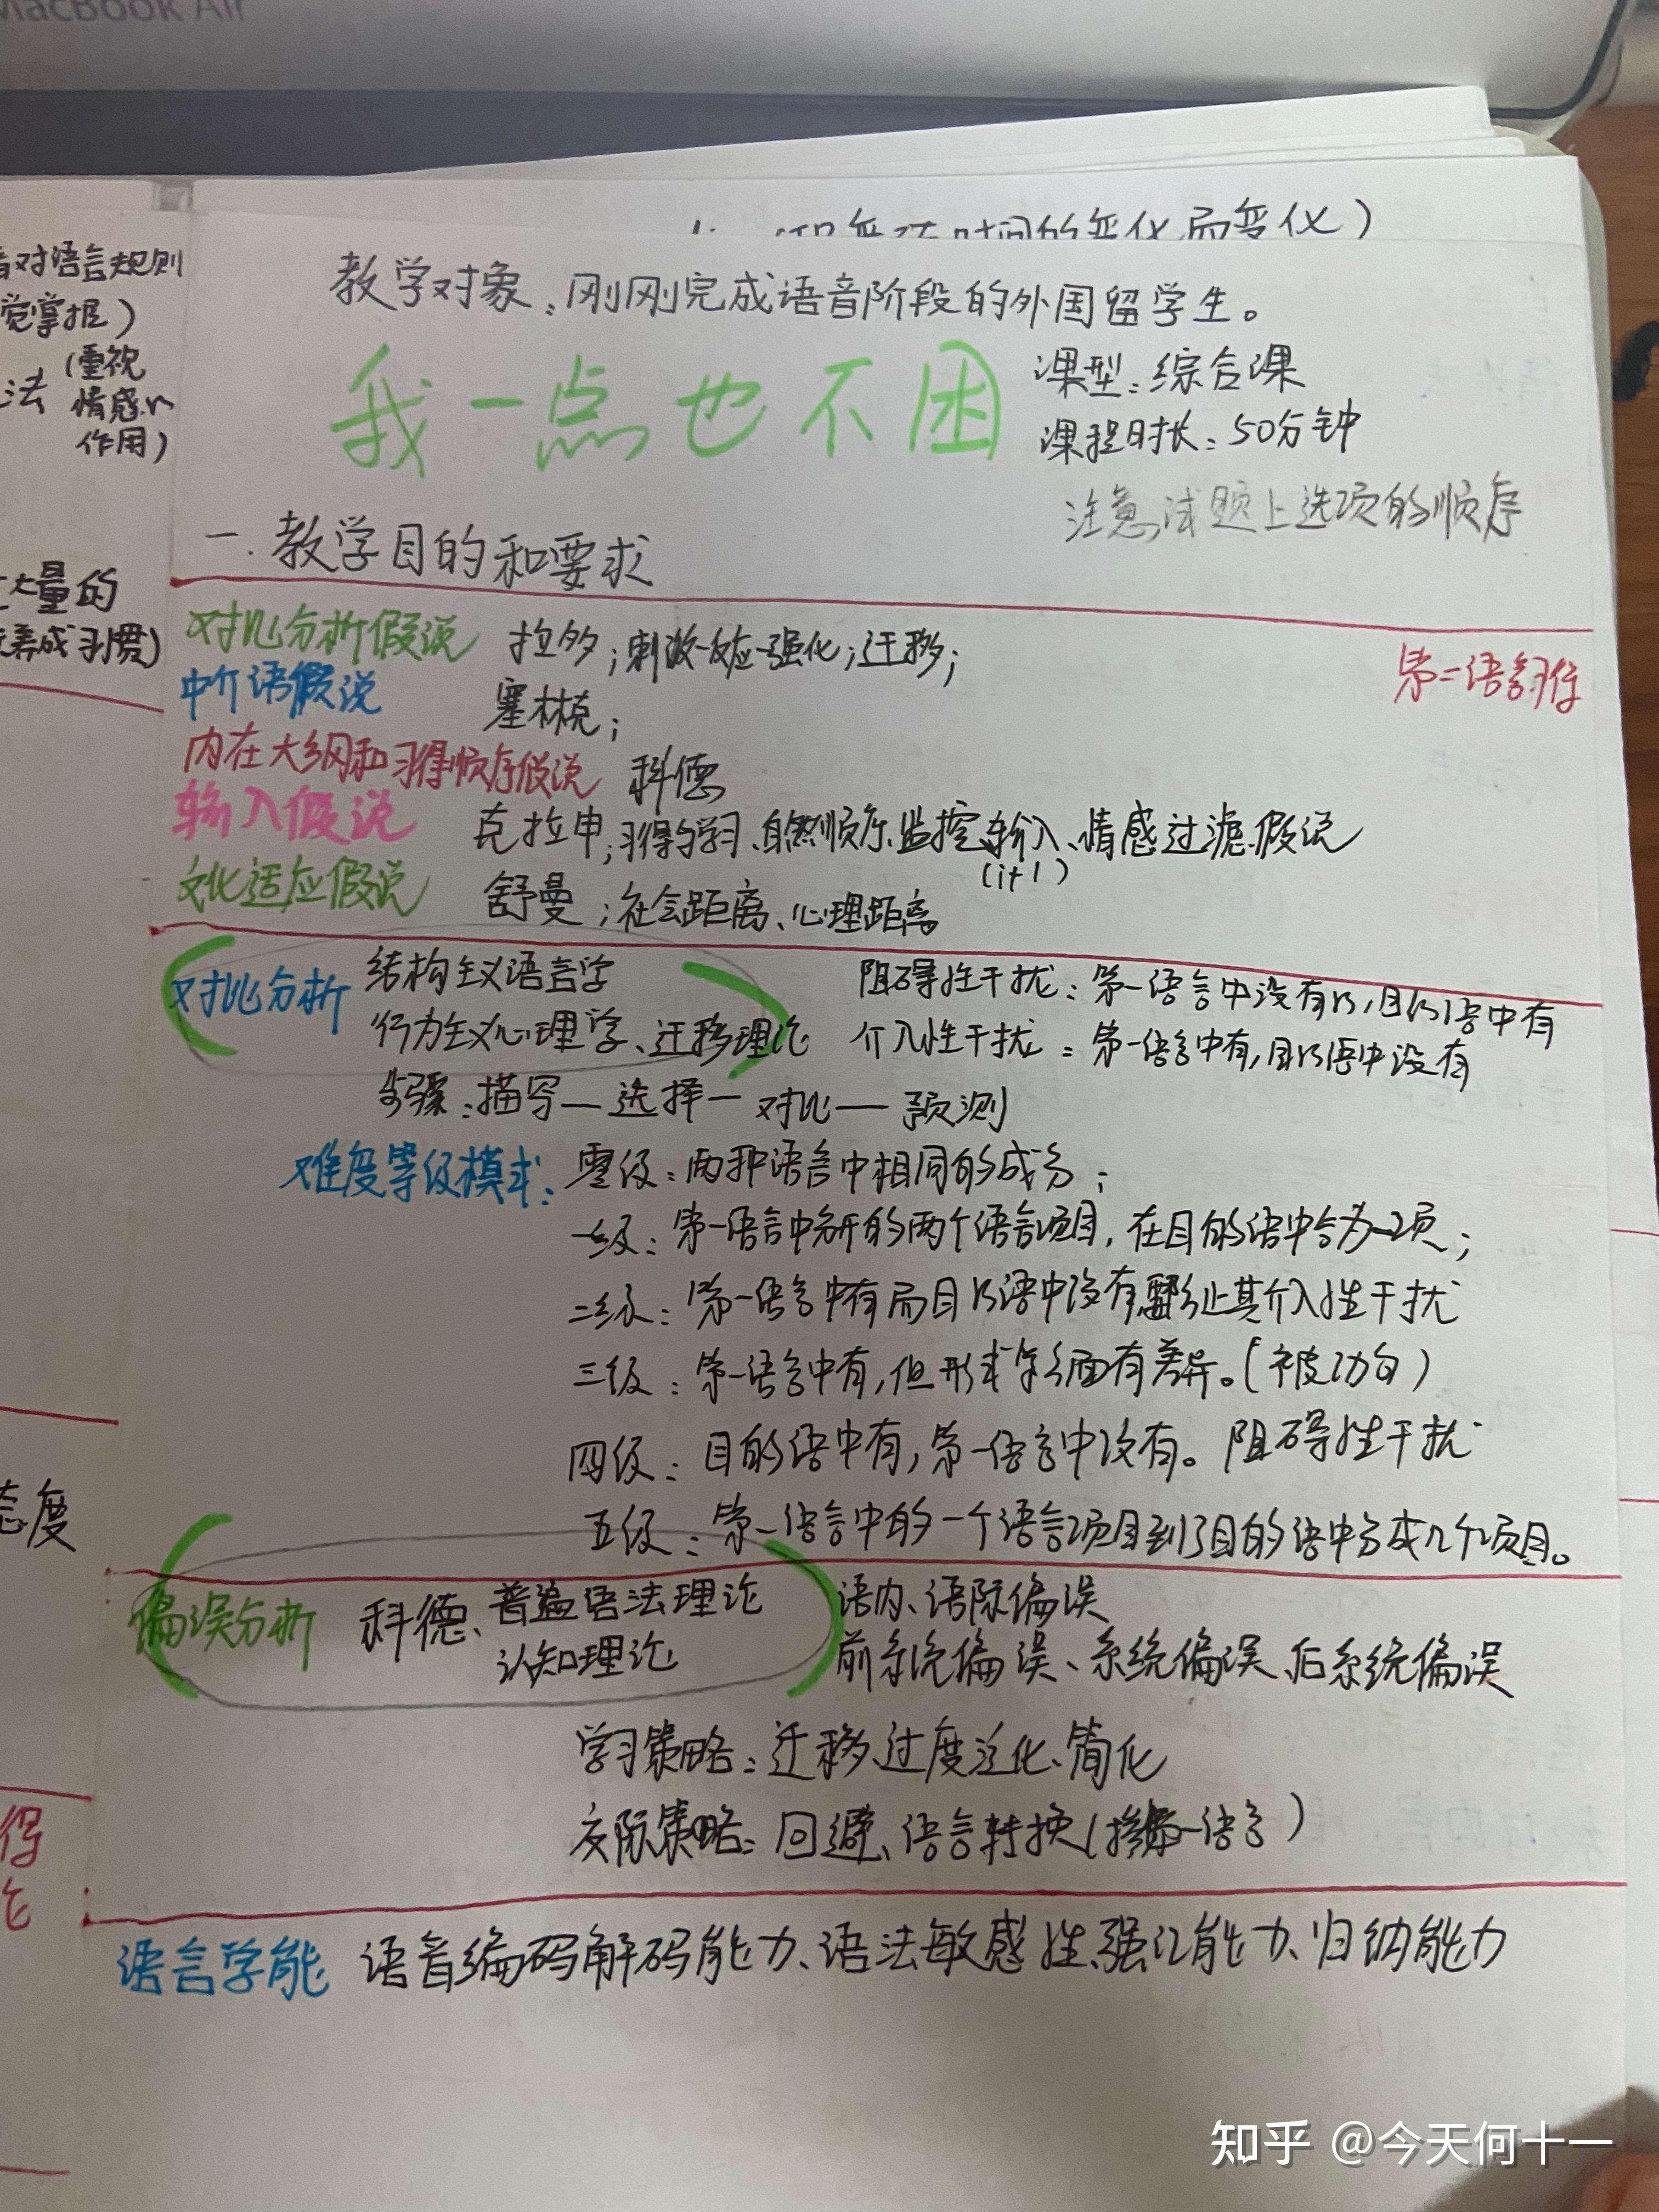 MacBook Air
时间的变化而变化）
教学对象：刚刚完成语音阶段的外国留学生。
我一点也不困
课型：综合课
课程时长：50分钟
注意试题上选项的顺序
一.教学目的和要求
对语言规则
觉掌握）
法（重视
情感的
作用）
大量的
养成习惯）
对比分析假说 拉多；刺激-反应-强化；迁移；
第二语言习得
中介语假说 塞林克；
内在大纲和习得顺序假说 科德
输入假说 克拉申；习得与学习、自然顺序、监控、输入、情感过滤假说
(i+1)
文化适应假说 舒曼；社会距离、心理距离
对比分析 结构主义语言学
行为主义心理学、迁移理论
阻碍性干扰：第一语言中没有的，目的语中有
介入性干扰：第一语言中有，目的语中没有
步骤：描写—选择—对比—预测
难度等级模式：零级：两种语言中相同的成分；
一级：第一语言中分开的两个语言项目，在目的语中合为一项；
二级：第一语言中有而目的语中没有 防止其介入性干扰
三级：第一语言中有，但形式等方面有差异。（被动句）
四级：目的语中有，第一语言中没有。阻碍性干扰
五级：第一语言中的一个语言项目到了目的语中分成几个项目。
态度
偏误分析 科德、普遍语法理论
认知理论
语内、语际偏误
前系统偏误、系统偏误、后系统偏误
学习策略：迁移、过度泛化、简化
交际策略：回避、语言转换（第一语言）
得
语言学能 语音编码解码能力、语法敏感性、强记能力、归纳能力
知乎 @今天何十一